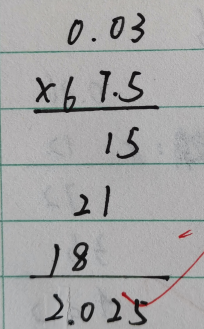 0.03
×67.5
15
21
18
2.025